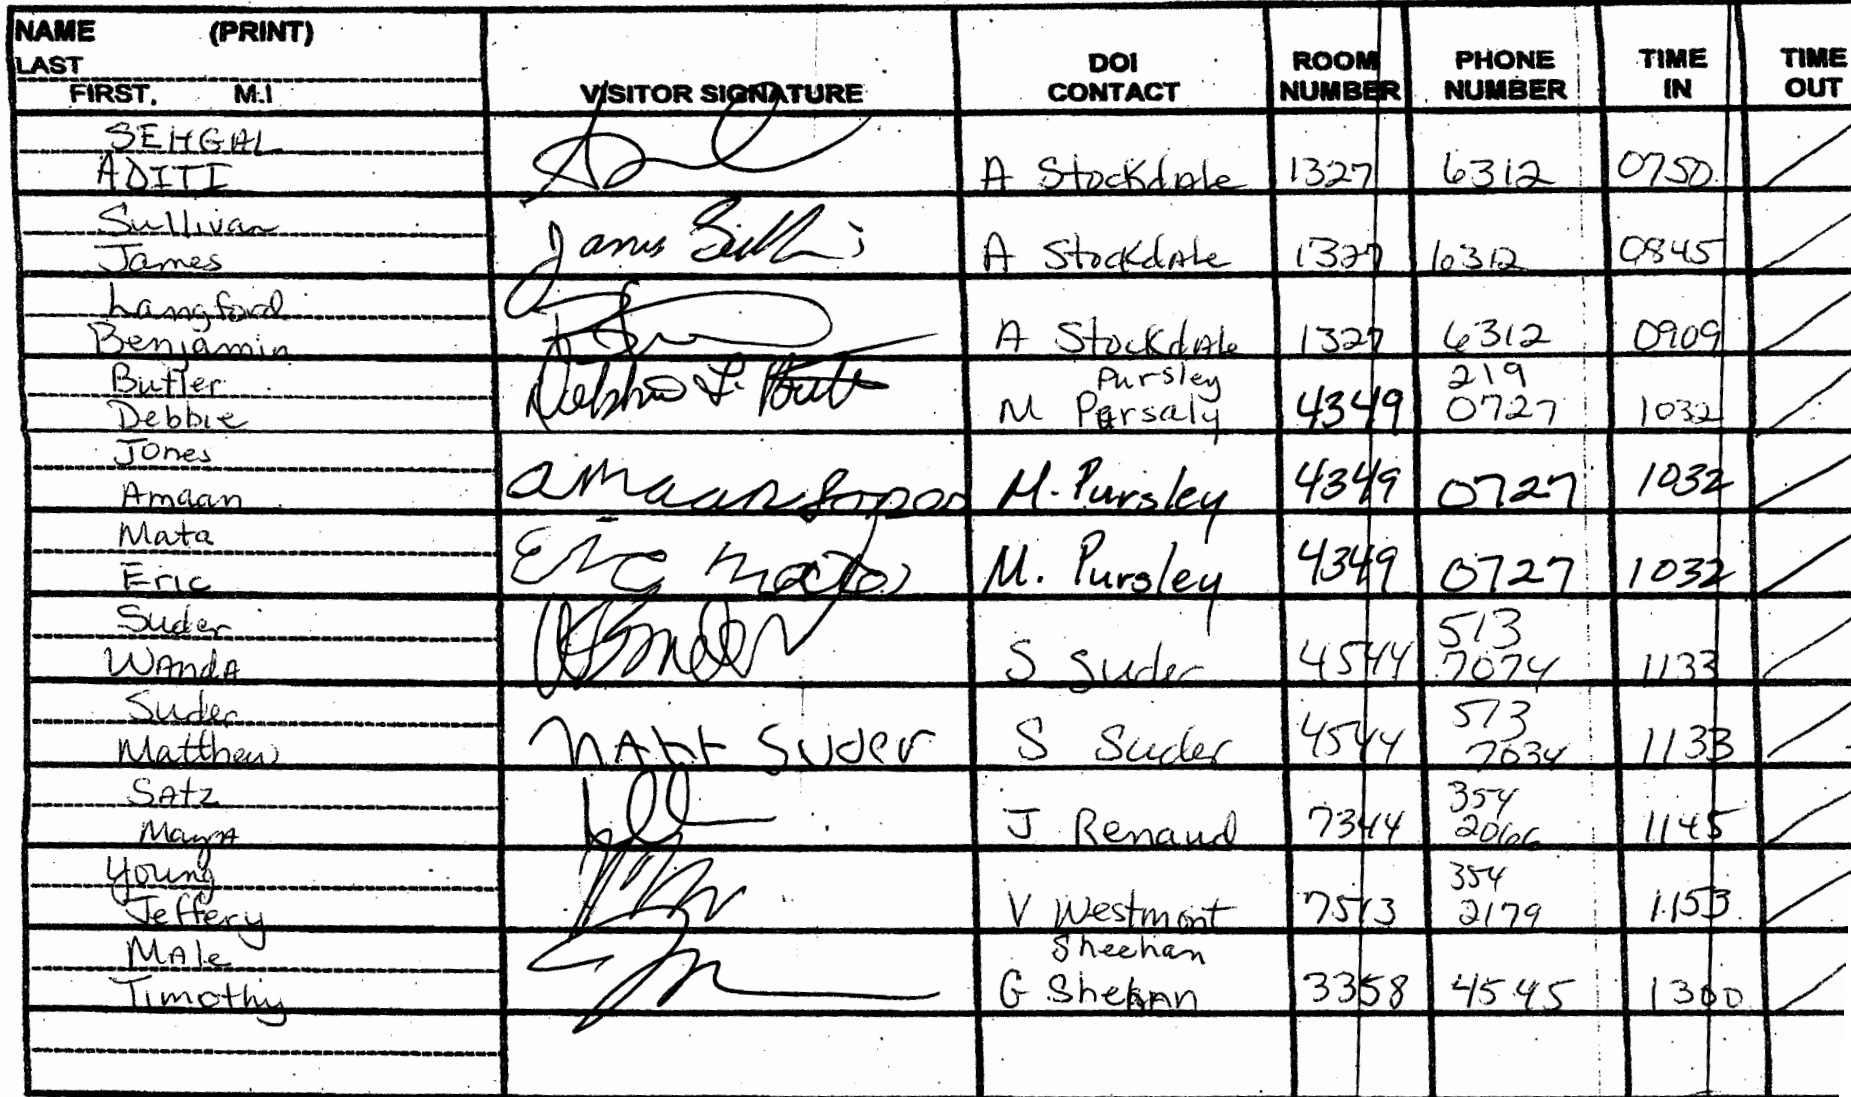 NAME (PRINT)
LAST
FIRST, M.I
VISITOR SIGNATURE
DOI CONTACT
ROOM NUMBER
PHONE NUMBER
TIME IN
TIME OUT
SEHGAL
ADITI A Stockdale 1327 6312 0750
Sullivan
James James A Stockdale 1327 6312 0845
Langford
Benjamin A Stockdale 1327 6312 0909
Butler Pursley 219
Debbie M Pursaly 4349 0727 1032
Jones
Amaan amaan M. Pursley 4349 0727 1032
Mata
Eric Eric Mata M. Pursley 4349 0727 1032
Suder 513
WANdA S Suder 4544 7074 1133
Suder 513
Matthew MATT SUDER S Suder 4544 7034 1133
SAtz 354
MayA J Renaud 7344 2066 1145
Young 354
Jeffery V Westmont 7513 2179 1153
MAle Sheehan
Timothy G Shehan 3358 4545 1300